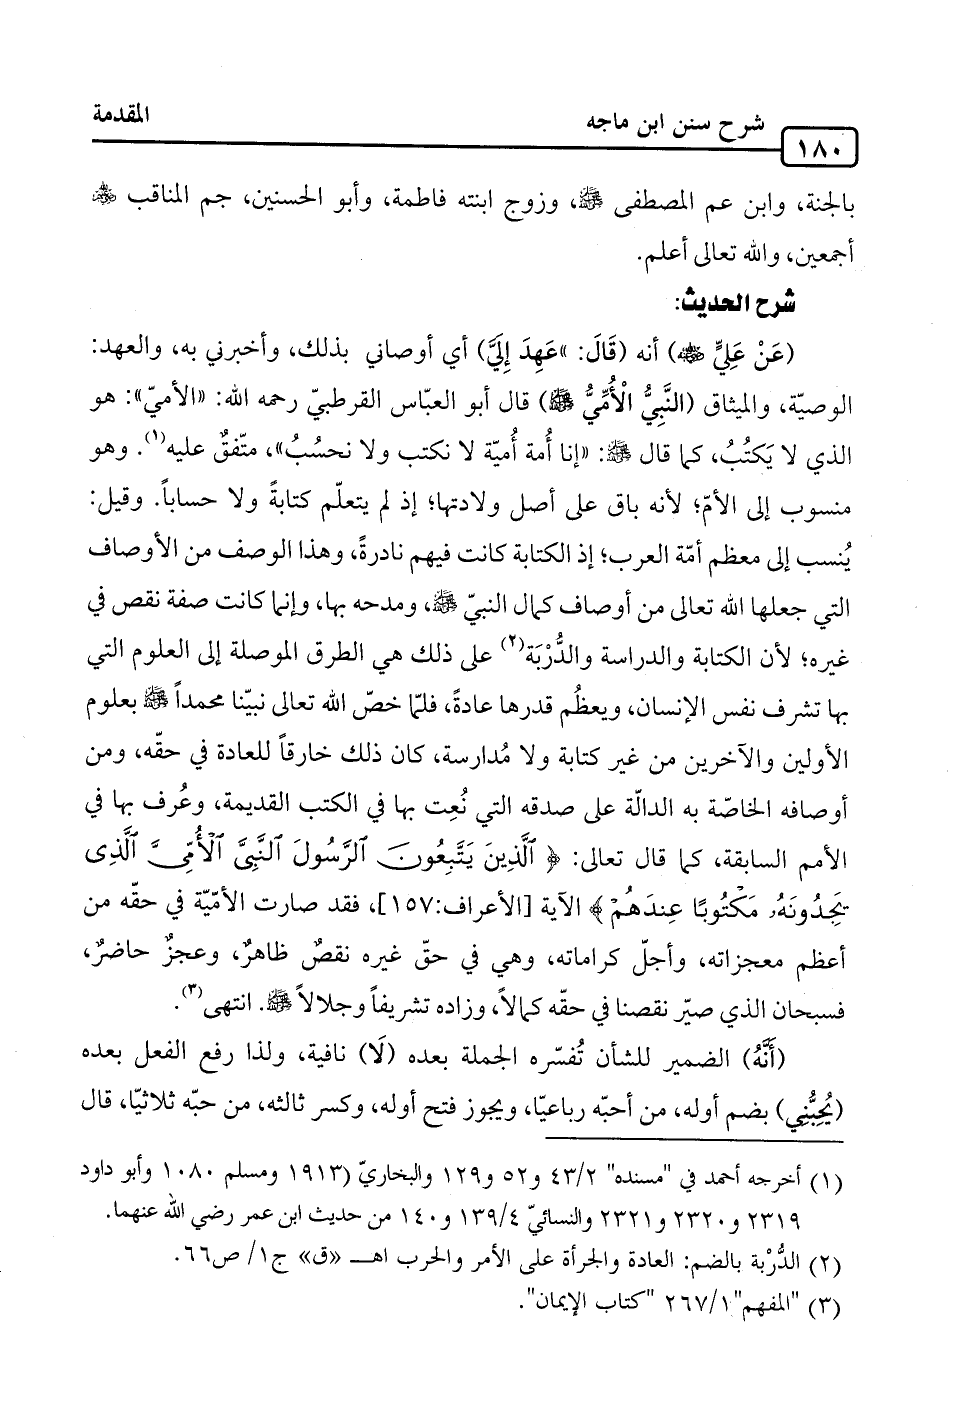 المقدمة
شرح سنن ابن ماجه
١٨٠
بالجنة، وابن عم المصطفى ﷺ، وزوج ابنته فاطمة، وأبو الحسنين، جم المناقب
أجمعين، والله تعالى أعلم.
شرح الحديث:
(عَنْ عَلِيٍّ ) أنه (قَالَ: «عَهِدَ إِلَيَّ) أي أوصاني بذلك، وأخبرني به، والعهد:
الوصيّة، والميثاق (النَّبِيُّ الْأُمِّيُّ ﷺ) قال أبو العبّاس القرطبيّ رحمه الله: «الأميّ»: هو
الذي لا يَكتُبُ، كما قال ﷺ: «إنا أُمة أُميّة لا نكتب ولا نحسُبُ»، متّفقٌ عليه(١). وهو
منسوب إلى الأمّ؛ لأنه باق على أصل ولادتها؛ إذ لم يتعلّم كتابةً ولا حساباً. وقيل:
يُنسب إلى معظم أمّة العرب؛ إذ الكتابة كانت فيهم نادرةً، وهذا الوصف من الأوصاف
التي جعلها الله تعالى من أوصاف كمال النبيّ ﷺ، ومدحه بها، وإنما كانت صفة نقص في
غيره؛ لأن الكتابة والدراسة والدُّرْبَة(٢) على ذلك هي الطرق الموصلة إلى العلوم التي
بها تشرف نفس الإنسان، ويعظُم قدرها عادةً، فلمّا خصّ الله تعالى نبيّنا محمداً ﷺ بعلوم
الأولين والآخرين من غير كتابة ولا مُدارسة، كان ذلك خارقاً للعادة في حقّه، ومن
أوصافه الخاصّة به الدالّة على صدقه التي نُعِت بها في الكتب القديمة، وعُرف بها في
الأمم السابقة، كما قال تعالى: ﴿ ٱلَّذِينَ يَتَّبِعُونَ ٱلرَّسُولَ ٱلنَّبِىَّ ٱلْأُمِّىَّ ٱلَّذِى
يَجِدُونَهُۥ مَكْتُوبًا عِندَهُمْ ﴾ الآية [الأعراف:١٥٧]، فقد صارت الأمّيّة في حقّه من
أعظم معجزاته، وأجلّ كراماته، وهي في حقّ غيره نقصٌ ظاهرٌ، وعجزٌ حاضرٌ،
فسبحان الذي صيّر نقصنا في حقّه كمالاً، وزاده تشريفاً وجلالاً ﷺ. انتهى(٣).
(أَنَّهُ) الضمير للشأن تُفسّره الجملة بعده (لَا) نافية، ولذا رفع الفعل بعده
(يُحِبُّنِي) بضم أوله، من أحبّه رباعيّا، ويجوز فتح أوله، وكسر ثالثه، من حبّه ثلاثيّا، قال
(١) أخرجه أحمد في "مسنده" ٤٣/٢ و٥٢ و١٢٩ والبخاريّ (١٩١٣ ومسلم ١٠٨٠ وأبو داود
٢٣١٩ و٢٣٢٠ و٢٣٢١ والنسائيّ ١٣٩/٤ و١٤٠ من حديث ابن عمر رضي الله عنهما.
(٢) الدُّرْبة بالضم: العادة والجرأة على الأمر والحرب اهـ «ق» ج١/ ص٦٦.
(٣) "المفهم"٢٦٧/١ "كتاب الإيمان".